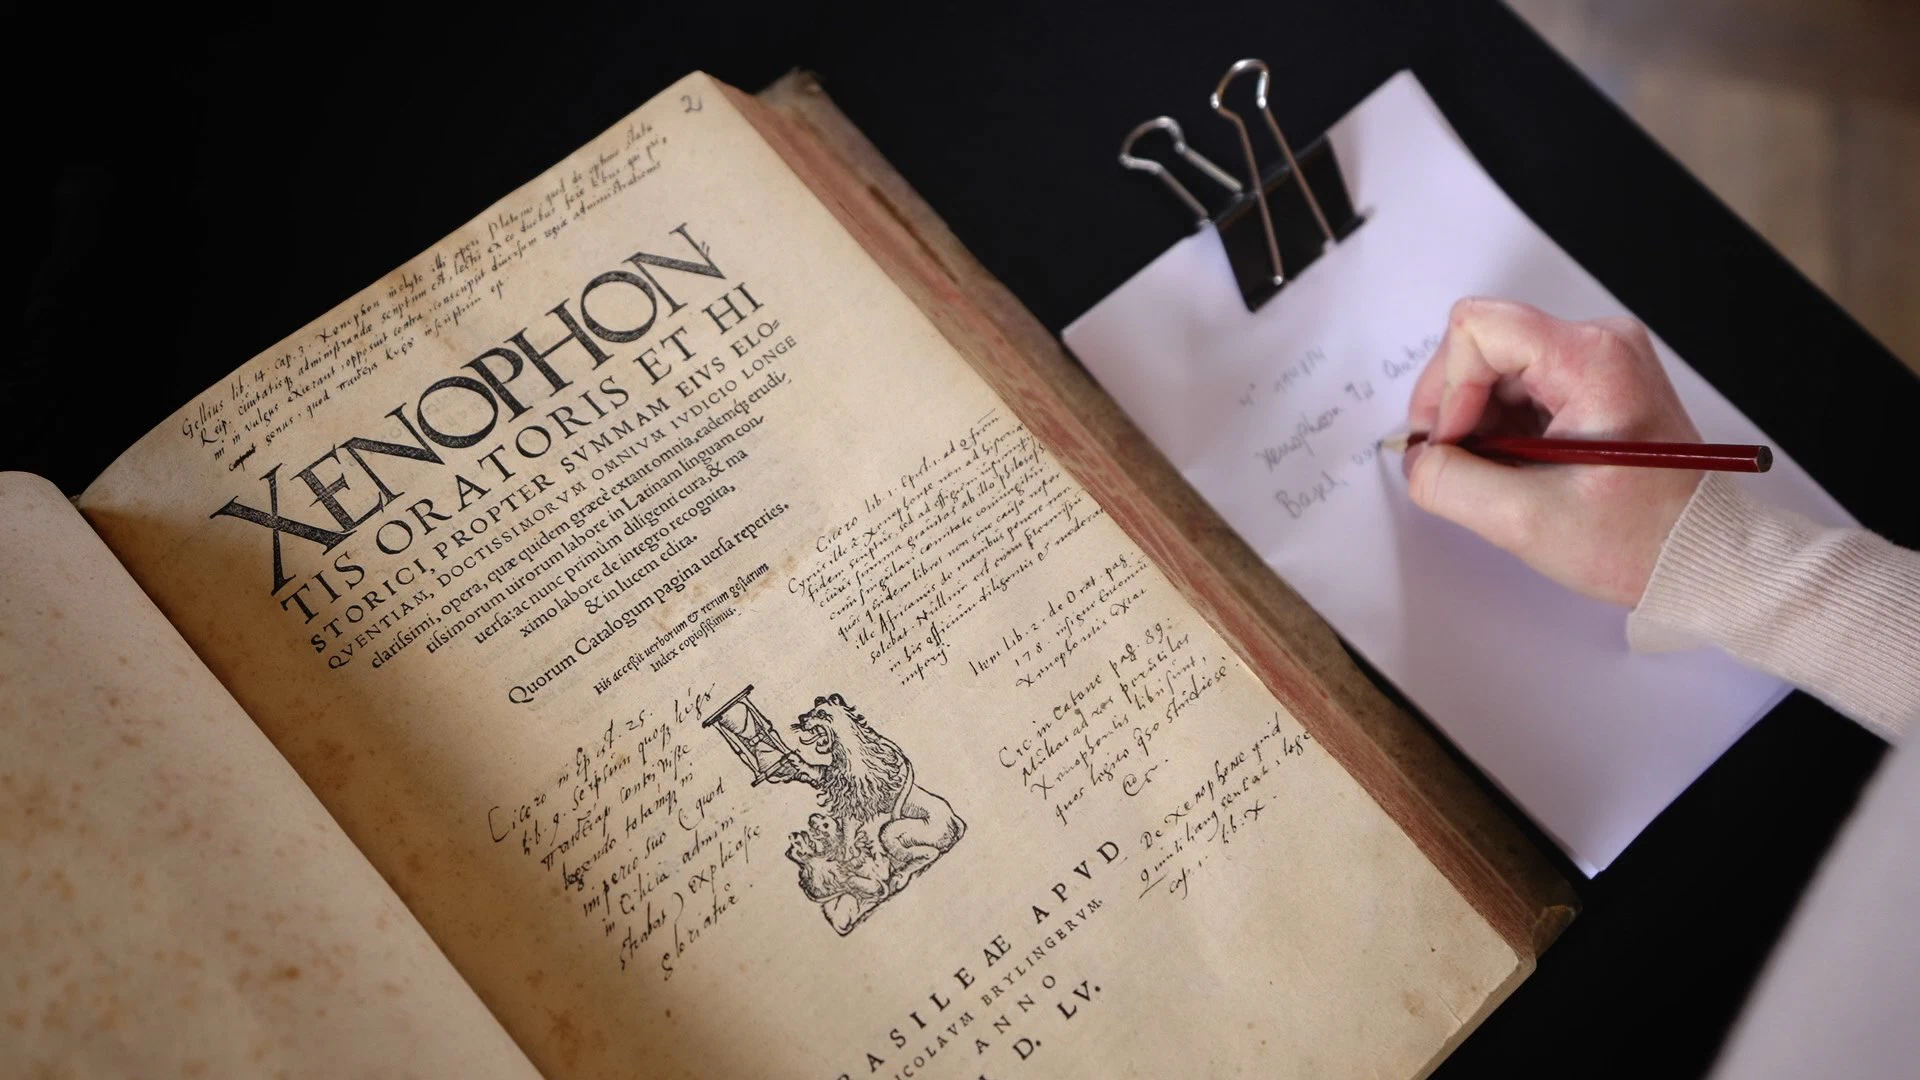 2
Gellius lib. 14. cap. 3. Xenophon inclyto illi operi Platonis, quod de optimo statu
Reip. civitatisq administrandæ scriptum est, lectis ex eo duobus fere libris qui pri
mi in vulgus exierant, opposuit contra, conscripsit diversum regiæ administrationis
genus, quod inscriptum
XENOPHON
TIS ORATORIS ET HI
STORICI, PROPTER SVMMAM EIVS ELO=
QVENTIAM, DOCTISSIMORVM OMNIVM IVDICIO LONGE
clarissimi, opera, quæ quidem græce extant omnia, eademq́; erudi,
tissimorum uirorum labore in Latinam linguam con,
uersa: ac nunc primum diligenti cura, & ma
ximo labore de integro recognita,
& in lucem edita.
Quorum Catalogum pagina uersa reperies.
His acceßit uerborum & rerum gestarum
Index copiosißimus.
Cicero lib. 1. Epist. ad Q. from
Cyrus ille à Xenophonte non ad historiæ
fidem scriptus, sed ad effigiem
cuius summa gravitas ab illo philosopho
cum singulari comitate coniungitur
quos quidem libros non sine causa noster
ille Africanus de manibus ponere non
solebat. Nullum est enim prætermissum
in his officium diligentis & moderati
imperij
Item lib. 2. de Orat. pag.
178.
Xenophontis
Cic in Catone pag. 89:
Multas ad res perutiles
Xenophontis libri sunt,
quos legite qso studiose
Cicero in Ep. 25.
lib. 9. se ipsum quoq
contrivisse
legendo totamq in
imperio suo (quod
in Cilicia admini
strabat) explicasse
gloriatur
De Xenophonte quid
Quintilianus sentiat, lege
lib. X.
cap. 1.
BASILEAE APVD
NICOLAVM BRYLINGERVM.
ANNO
D. LV.
Xenophon
Basel,